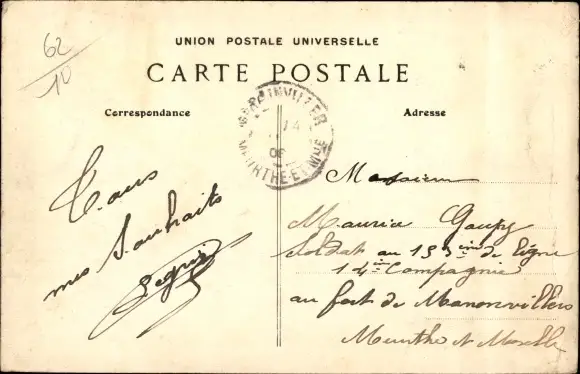 62
10
UNION POSTALE UNIVERSELLE
CARTE POSTALE
Correspondance
Adresse
14
06
MEURTHE-ET-MLLE
Tous
mes Souhaits
Monsieur
Maurice Goupy
Soldat au 153ième de Ligne
14ie Compagnie
au fort de Manonvillers
Meurthe et Moselle